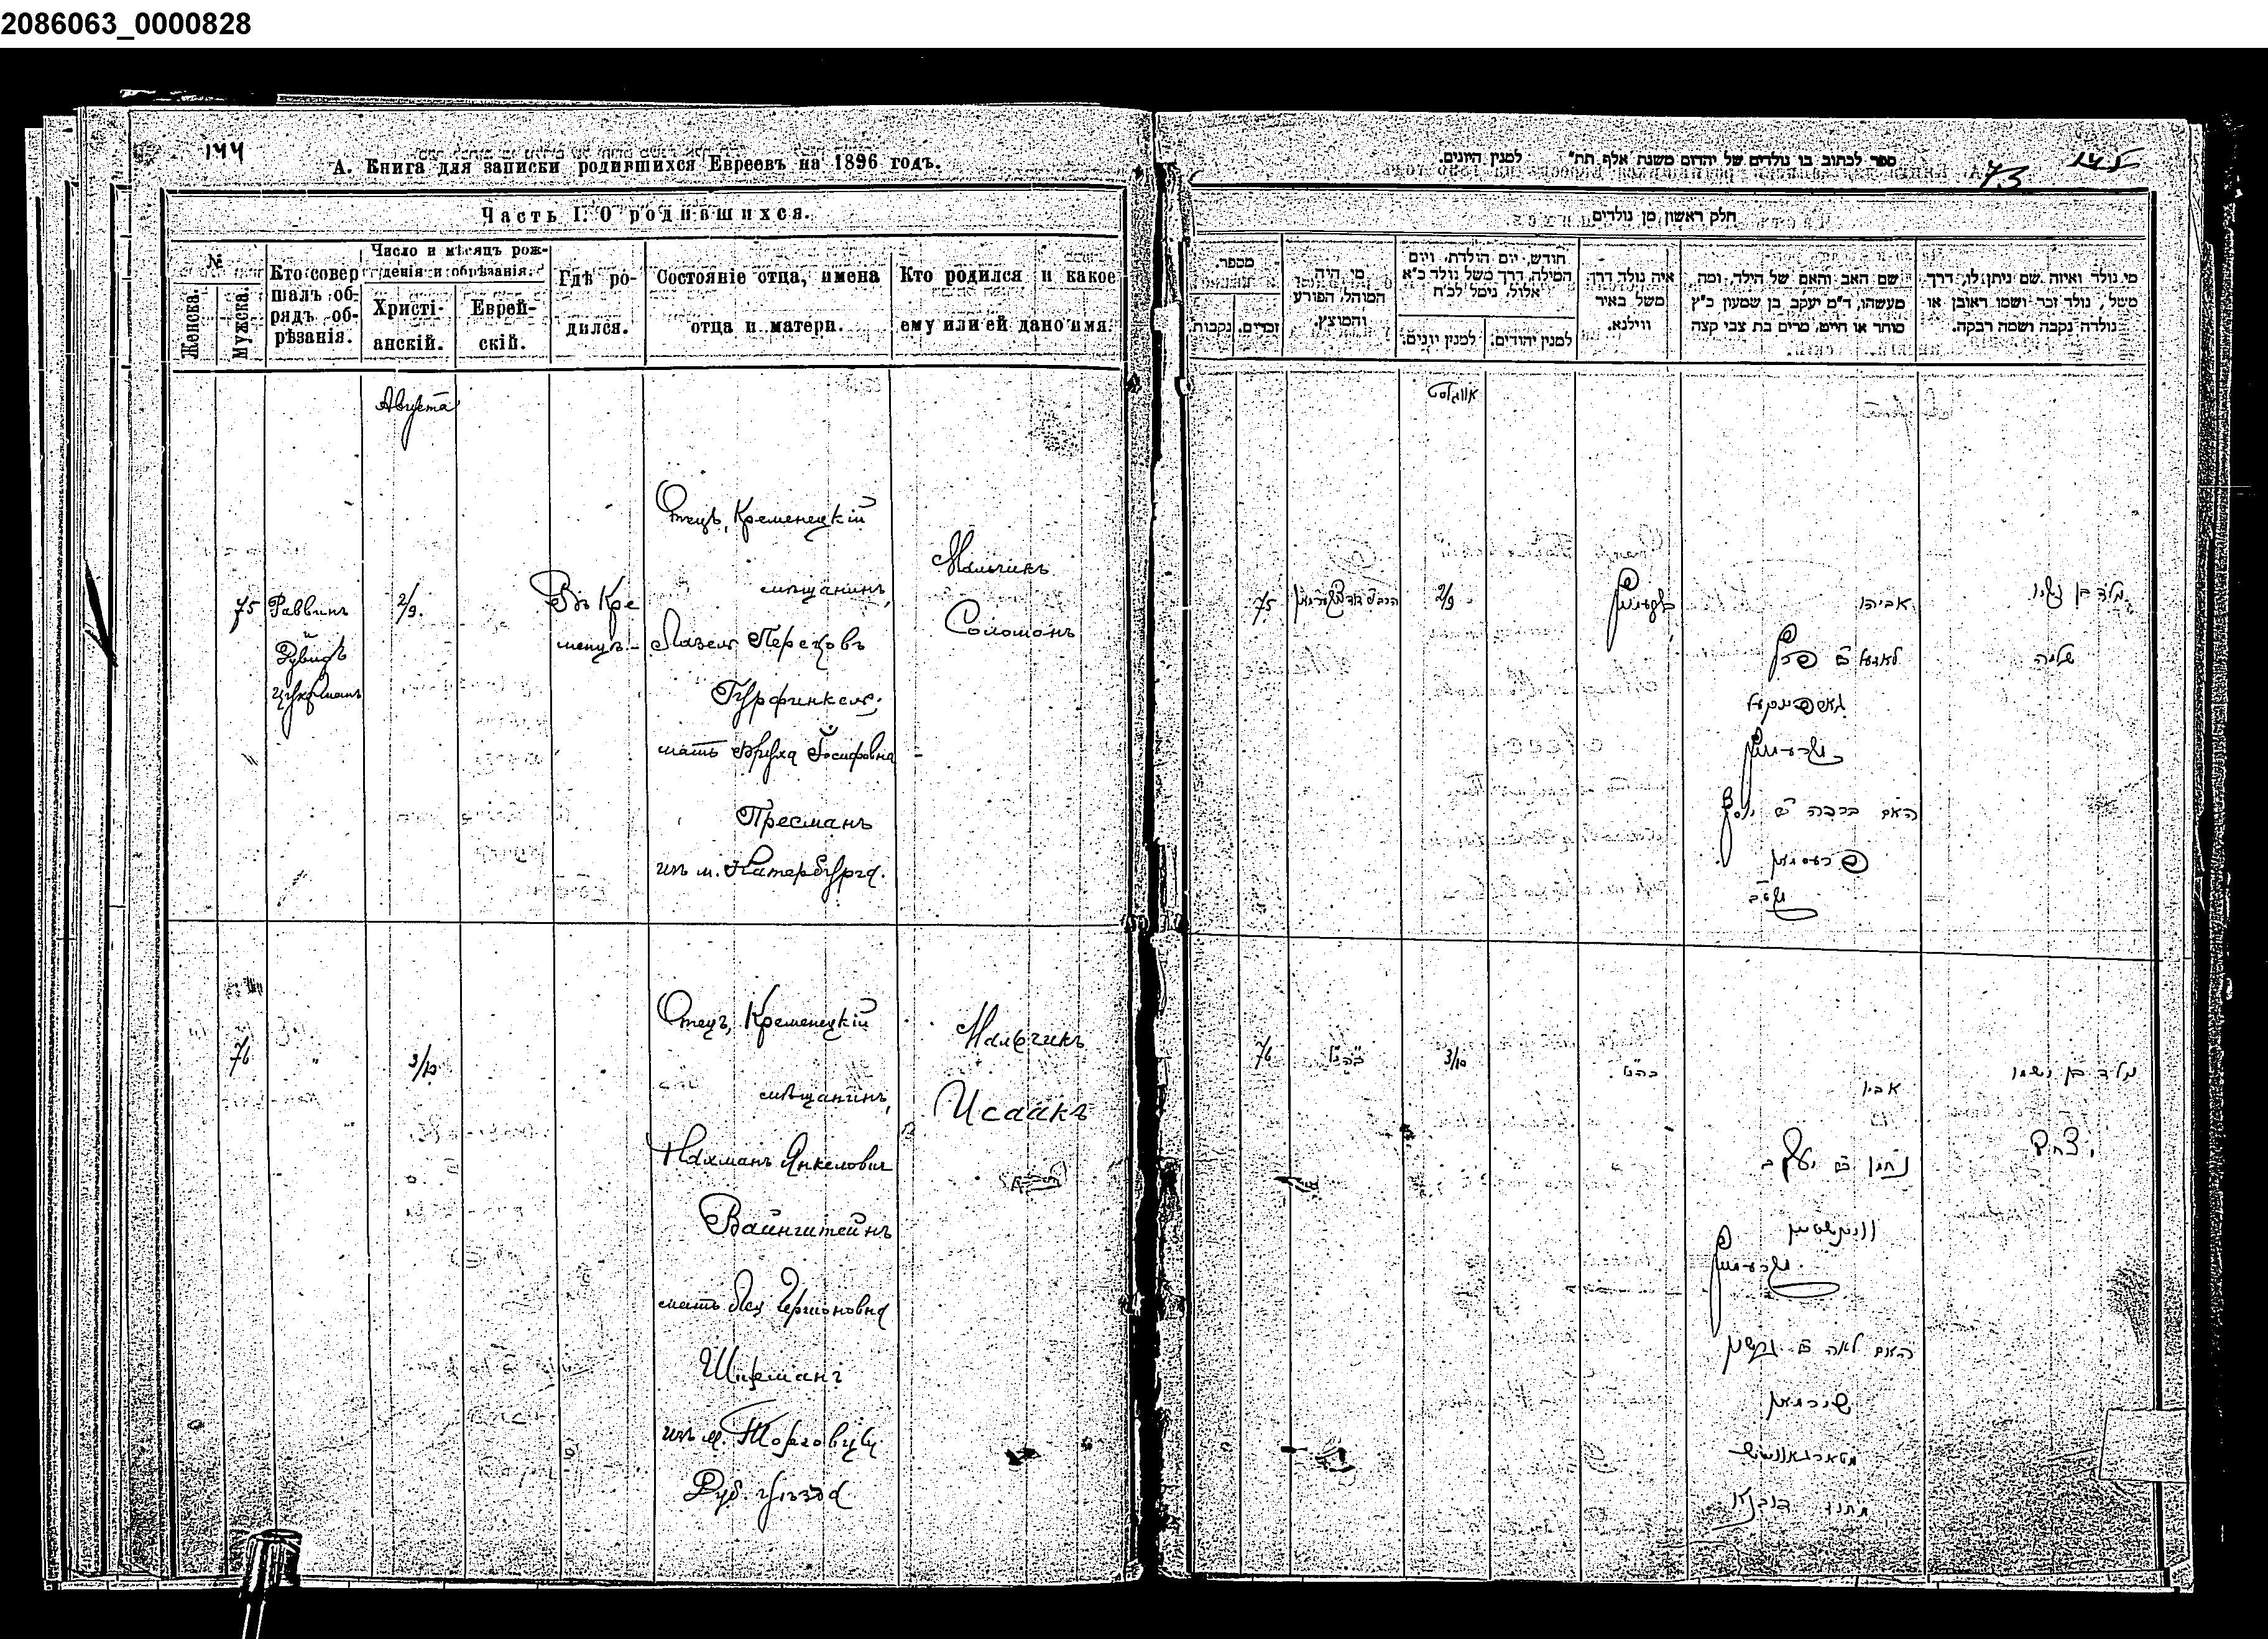 2086063_0000828
144
А. Книга для записки родившихся Евреевъ на 1896 годъ.
Часть I. О родившихся.
№
Женска.
Мужска.
Кто совер
шалъ об-
рядъ об-
рѣзанія.
Число и мѣсяцъ рож-
денія и обрѣзанія.
Христі-
анскій.
Еврей-
скій.
Гдѣ ро-
дился.
Состояніе отца, имена
отца и матери.
Кто родился и какое
ему или ей дано имя.
Августа
75
Раввинъ
Дувидъ
Цукерманъ
2/9.
Въ Кре
менцѣ
Отецъ, Кременецкій
мѣщанинъ,
Лазель Перецовъ
Гурфинкель;
мать Бруха Іосифовна
Пресманъ
изъ м. Катербурга.
Мальчикъ
Соломонъ
76
"
3/10
Отецъ, Кременецкій
мѣщанинъ,
Нахманъ Янкеловичъ
Вайнштейнъ
мать Лея Гершоновна
изъ м. Торговицы
Дуб. уѣзда
Мальчикъ
Исаакъ
145
73
ספר לכתוב בו נולדים של יהדום משנת אלף תת" למנין היונים.
חלק ראשון מן נולדים
מספר.
נקבות
זכרים.
מי היה
המוהל, הפורע
והמוצץ.
חודש, יום הולדת, ויום
המילה, דרך משל נולד כ"א
אלול, נימל לכ"ח
למנין יונים.
למנין יהודים.
איה נולד דרך
משל באיר
ווילנא.
שם האב והאם של הילד, ומה
מעשהו, ד"מ יעקב בן שמעון כ"ץ
סוחר או חייט, מרים בת צבי קצה
מי נולד ואיזה שם ניתן לו, דרך
משל, נולד זכר ושמו ראובן או
נולדה נקבה ושמה רבקה.
אווגוסט
75
2/9
אביהו
האם ברכה
יוסף
פרעסמאן
שלמה
76
כהנ"ל
3/10
כהנ"ל
אביו
נחמן
יעקב
וויינשטיין
האם לאה
נולד בן ושמו
יצחק